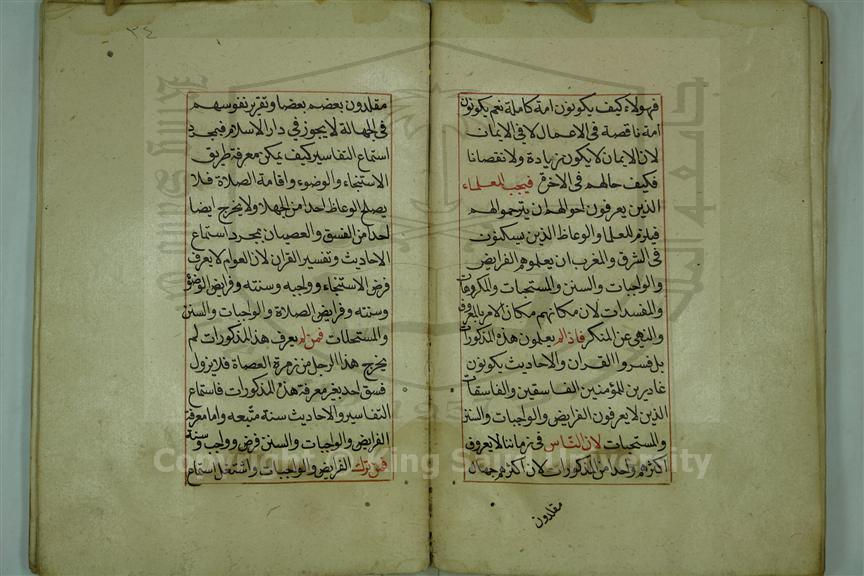 فهولاء كيف يكونون امة كاملة نعم يكونون
امة ناقصة فى الاعمال لا فى الايمان
لان الايمان لا يكون زيادة ولا نقصانا
فكيف حالهم فى الاخرة فيجب للعلماء
الذين يعرفون احوالهم ان يترحموا لهم
فيلزم للعلما والوعاظ الذين يسكنون
فى الشرق والمغرب ان يعلموهم الفرايض
والواجبات والسنن والمستحبات والمكروهات
والمفسدات لان مكانهم مكان الامر بالمعروف
والنهى عن المنكر فاذا لم يعلمون هذه المذكورات
بل فسروا القران والاحاديث يكونون
غادرين للمؤمنين الفاسقين والفاسقات
الذين لا يعرفون الفرايض والواجبات والسنن
والمستحبات لان الناس فى زماننا لا يعرف
اكثرهم واحدا من المذكورات لان اكثرهم جهال
مقلدون
٣٤
مقلدون بعضهم بعضا وتقرير نفوسهم
فى الجهالة لا يجوز فى دار الاسلام فبمجرد
استماع التفاسير كيف يمكن معرفة طريق
الاستنجاء والوضوء واقامة الصلاة فلا
يصلح الوعاظ احدا من الجهلا ولا يخرج ايضا
احدا من الفسق والعصيان بمجرد استماع
الاحاديث وتفسير القران لان العوام لا يعرف
فرض الاستنجاء وواجبه وسنته وفرايض الوضوء
وسنته وفرايض الصلاة والواجبات والسنن
والمستحبات فمن لم يعرف هذا المذكورات لم
يخرج هذا الرجل من زمرة العصاة فلا يزول
فسق احد بغير معرفة هذه المذكورات فاستماع
التفاسير والاحاديث سنة متبعه واما معرفة
الفرايض والواجبات والسنن فرض وواجب وسنة
فمن ترك الفرايض والواجبات واشتغل استماع
Copyright © King Saud University